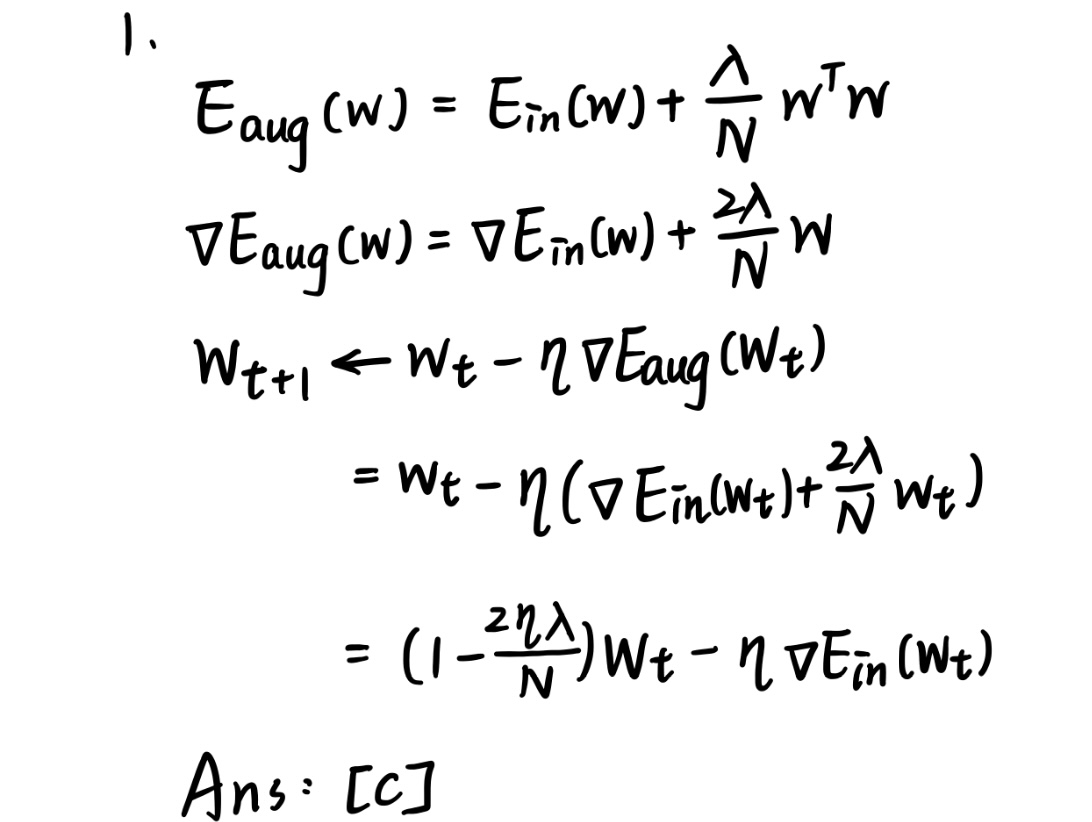 1.
E_aug(w) = E_in(w) + λ/N wᵀw
∇E_aug(w) = ∇E_in(w) + 2λ/N w
w_{t+1} ← w_t − η∇E_aug(w_t)
= w_t − η(∇E_in(w_t) + 2λ/N w_t)
= (1 − 2ηλ/N)w_t − η∇E_in(w_t)
Ans: [c]